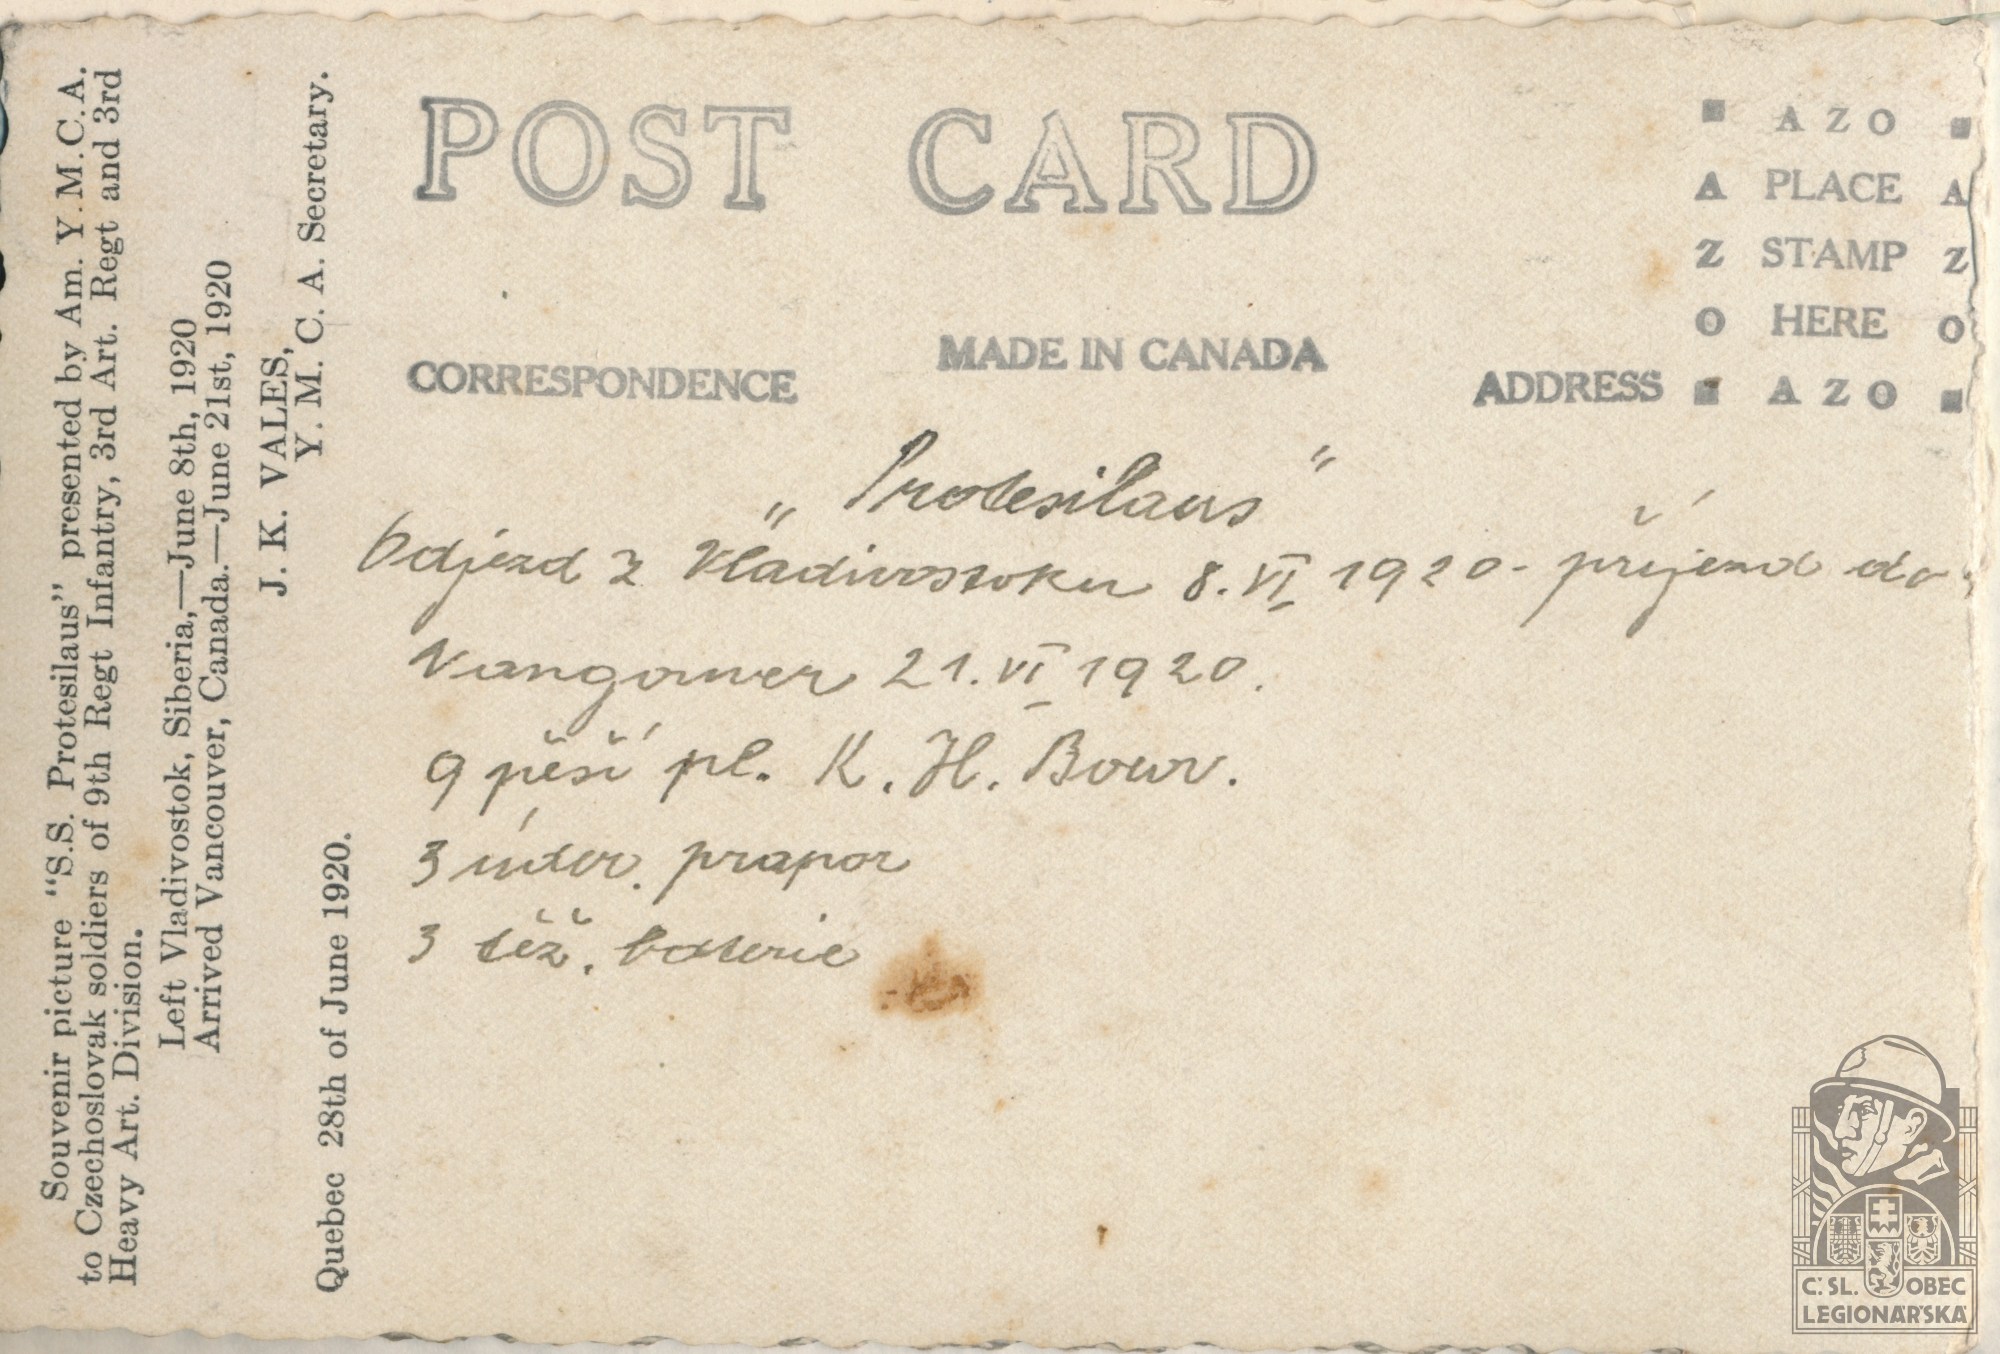 Souvenir picture "S.S. Protesilaus" presented by Am. Y.M.C.A.
to Czechoslovak soldiers of 9th Regt Infantry, 3rd Art. Regt and 3rd
Heavy Art. Division.
Left Vladivostok, Siberia,—June 8th, 1920
Arrived Vancouver, Canada.—June 21st, 1920
J. K. VALES,
Y. M. C. A. Secretary.
Quebec 28th of June 1920.
POST CARD
CORRESPONDENCE
MADE IN CANADA
ADDRESS
AZO
A PLACE A
Z STAMP Z
O HERE O
AZO
„Protesilaus"
Odjezd z Vladivostoku 8. VI 1920 - příjezd do
Vangouver 21. VI 1920.
9 pěší pl. K. H. Borov.
3 úder. prapor
3 těž. baterie
Č. SL. OBEC
LEGIONÁŘSKÁ